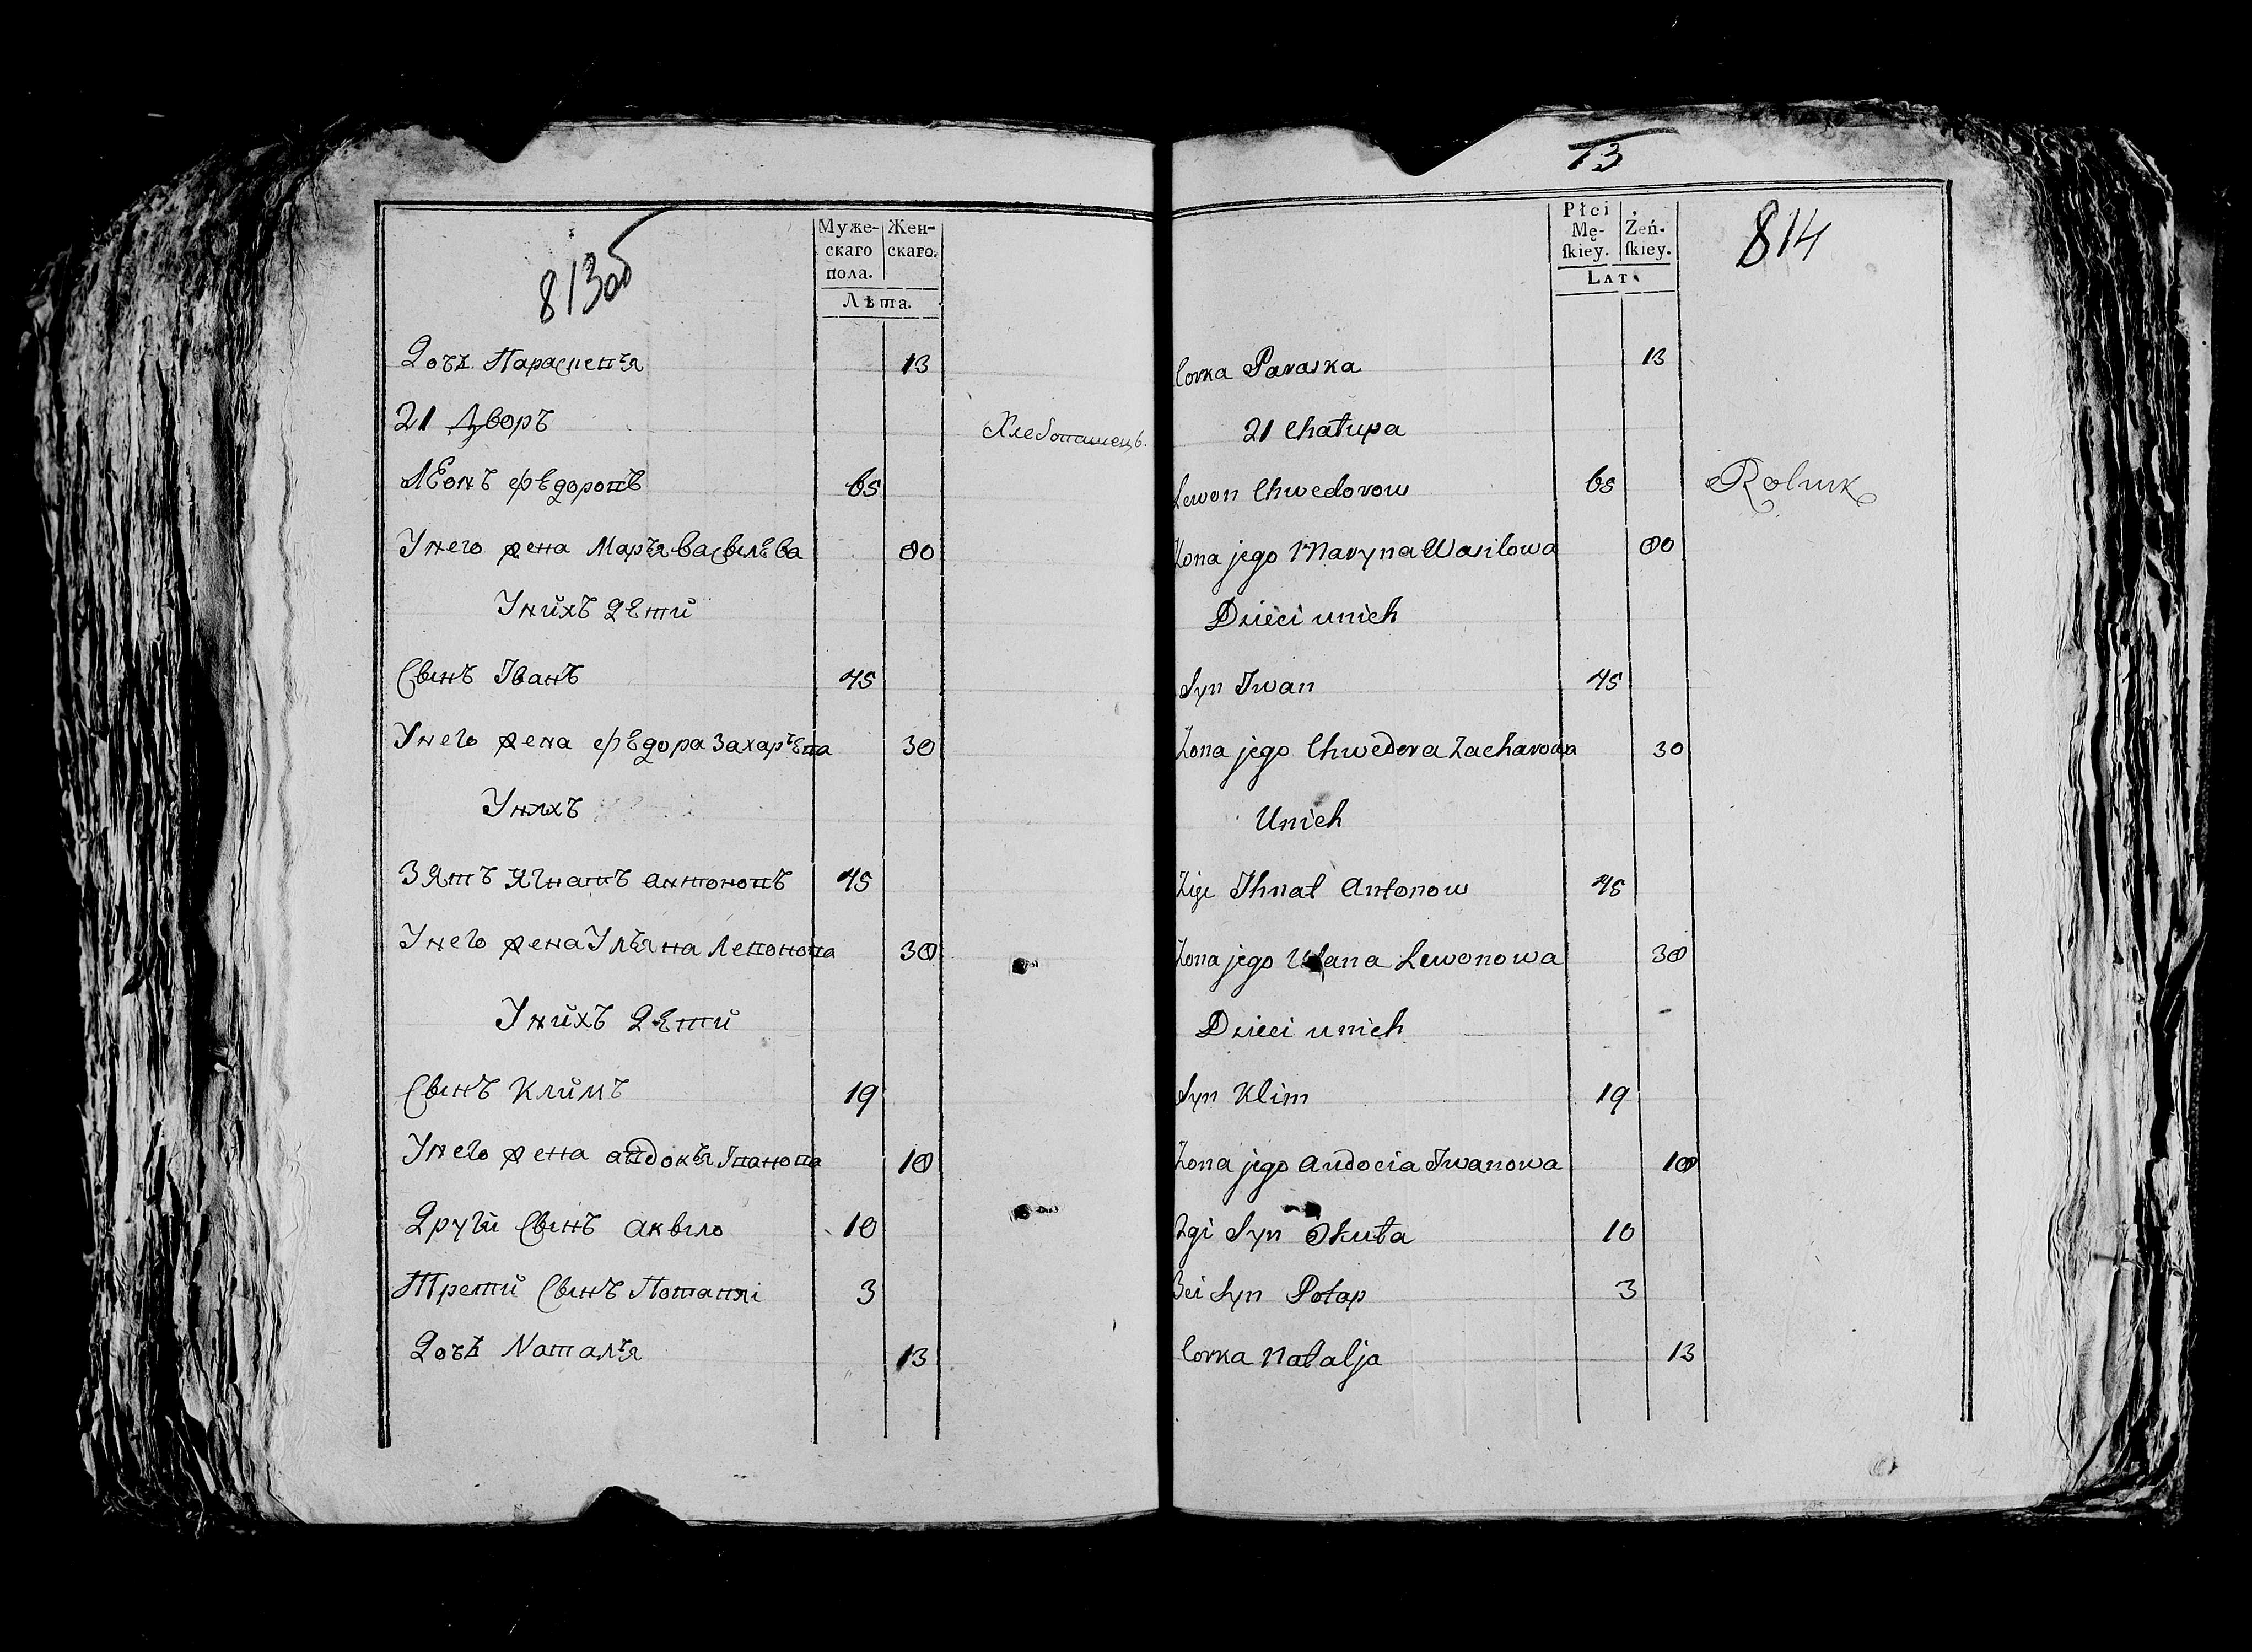 813об
Муже-
скаго
пола.
Жен-
скаго.
Лѣта.
Дочь Парасценья 13
21 Дворъ
Хлебопашецъ.
Леонъ Федоровъ 65
Унего жена Марья Васильева 60
Унихъ дети
Сынъ Іванъ 45
Унего жена Федора Захарьева 30
Унихъ
Зять Игнатъ Антоновъ 45
Унего жена Ульяна Левонова 38
Унихъ дети
Сынъ Климъ 19
Унего жена Авдокья Іванова 18
Други Сынъ Акыло 10
Трети Сынъ Потапи 3
Дочь Наталья 13
73
814
Płci
Mę-
ſkiey.
Żeń-
ſkiey.
LAT
Corka Paraska 13
21 Chałupa
Lewon Chwedorow 65 Rolnik
Zona jego Maryna Wasilowa 60
Dzieci unich
Syn Iwan 45
Zona jego Chwedora Zacharowa 30
Unich
Zięc Ihnat Antonow 45
Zona jego Ulana Lewonowa 38
Dzieci unich
Syn Klim 19
Zona jego Audocia Iwanowa 18
2gi Syn Okuła 10
3ci Syn Potap 3
Corka Natalja 13